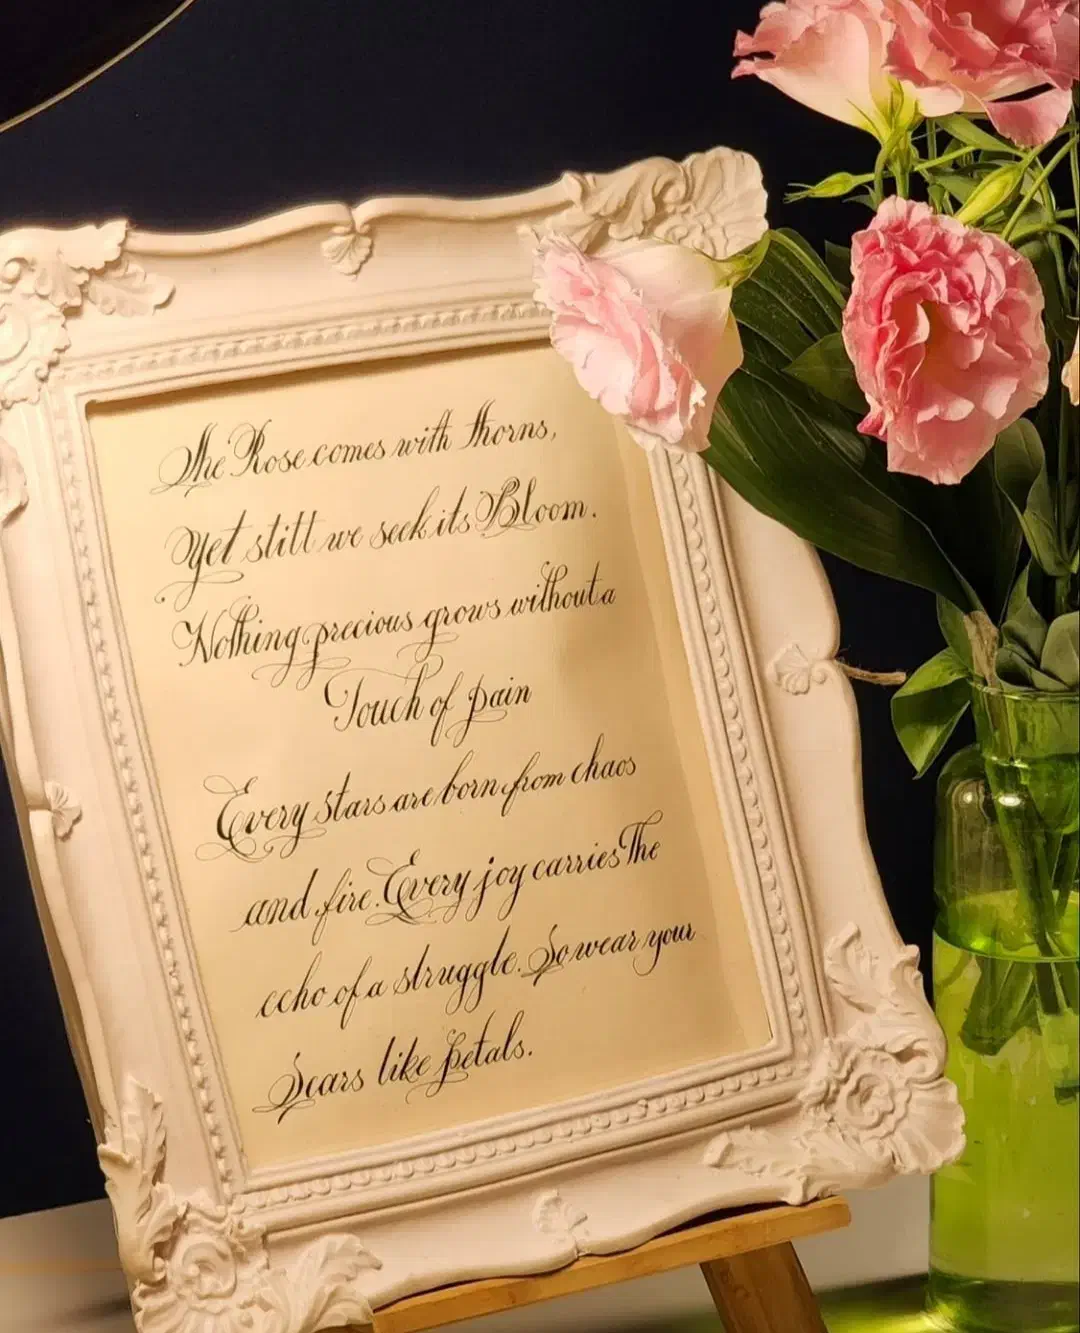 The Rose comes with thorns,
Yet still we seek its Bloom.
Nothing precious grows without a
Touch of pain
Every stars are born from chaos
and fire. Every joy carries The
echo of a struggle. So wear your
Scars like petals.